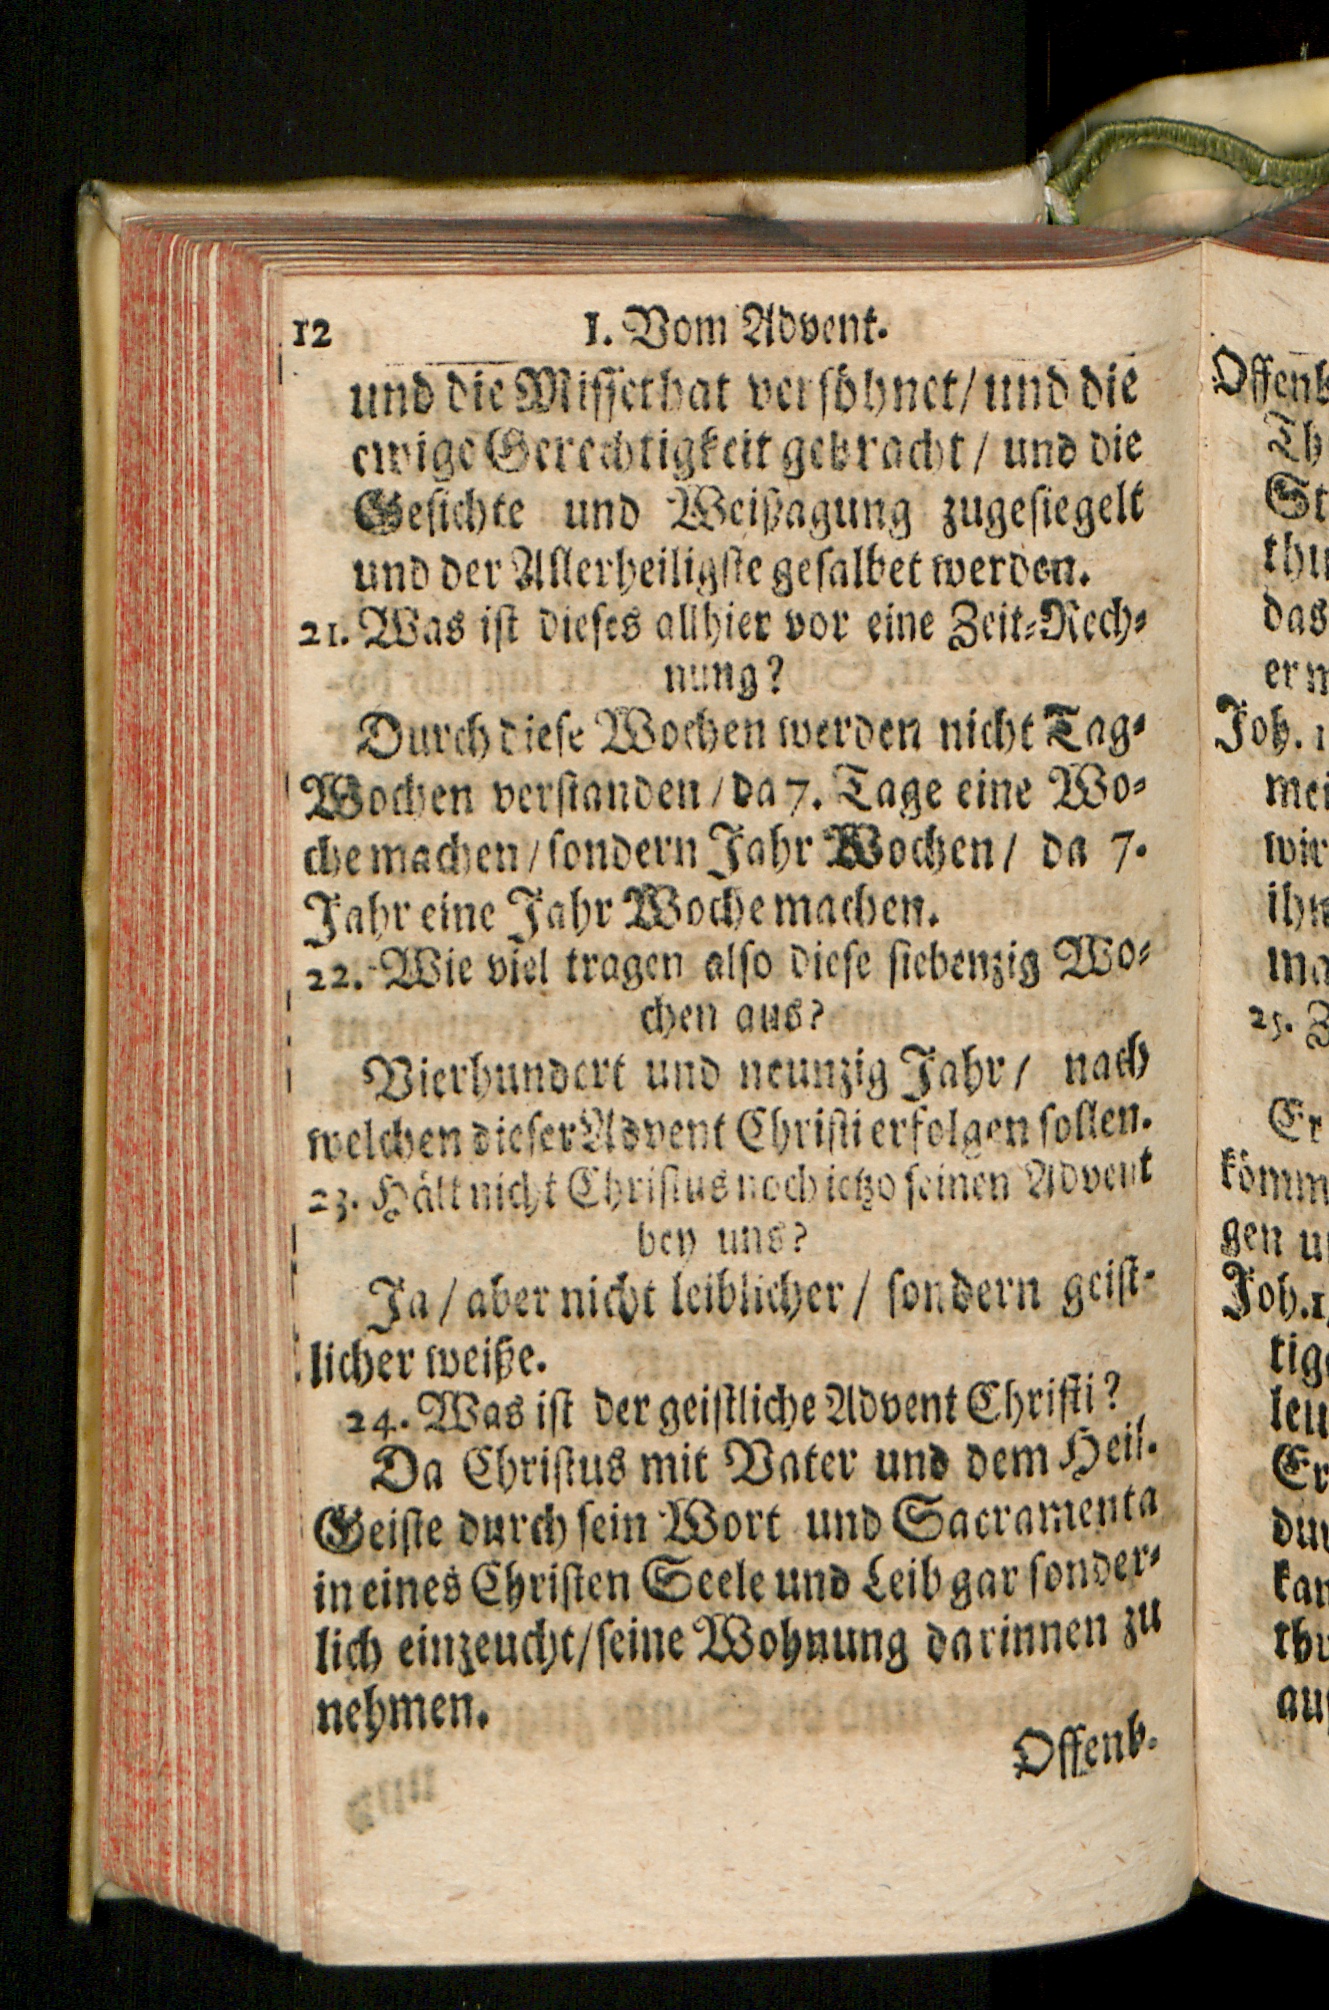 12 I. Vom Advent.
und die Missethat versöhnet/ und die
ewige Gerechtigkeit gebracht/ und die
Gesichte und Weißagung zugesiegelt
und der Allerheiligste gesalbet werden.
21. Was ist dieses allhier vor eine Zeit-Rech-
nung?
Durch diese Wochen werden nicht Tag-
Wochen verstanden/ da 7. Tage eine Wo-
che machen/ sondern Jahr Wochen/ da 7.
Jahr eine Jahr Woche machen.
22. Wie viel tragen also diese siebenzig Wo-
chen aus?
Vierhundert und neunzig Jahr/ nach
welchen dieser Advent Christi erfolgen sollen.
23. Hält nicht Christus noch ietzo seinen Advent
bey uns?
Ja/ aber nicht leiblicher/ sondern geist-
licher weiße.
24. Was ist der geistliche Advent Christi?
Da Christus mit Vater und dem Heil.
Geiste durch sein Wort und Sacramenta
in eines Christen Seele und Leib gar sonder-
lich einzeucht/ seine Wohnung darinnen zu
nehmen.
Offenb.
Offenb
Th
St
thu
das
er m
Joh. 1
mei
wir
ihn
ma
25. Z
Er
kömm
gen u
Joh. 1
tige
leu
Er
du
kan
thu
au